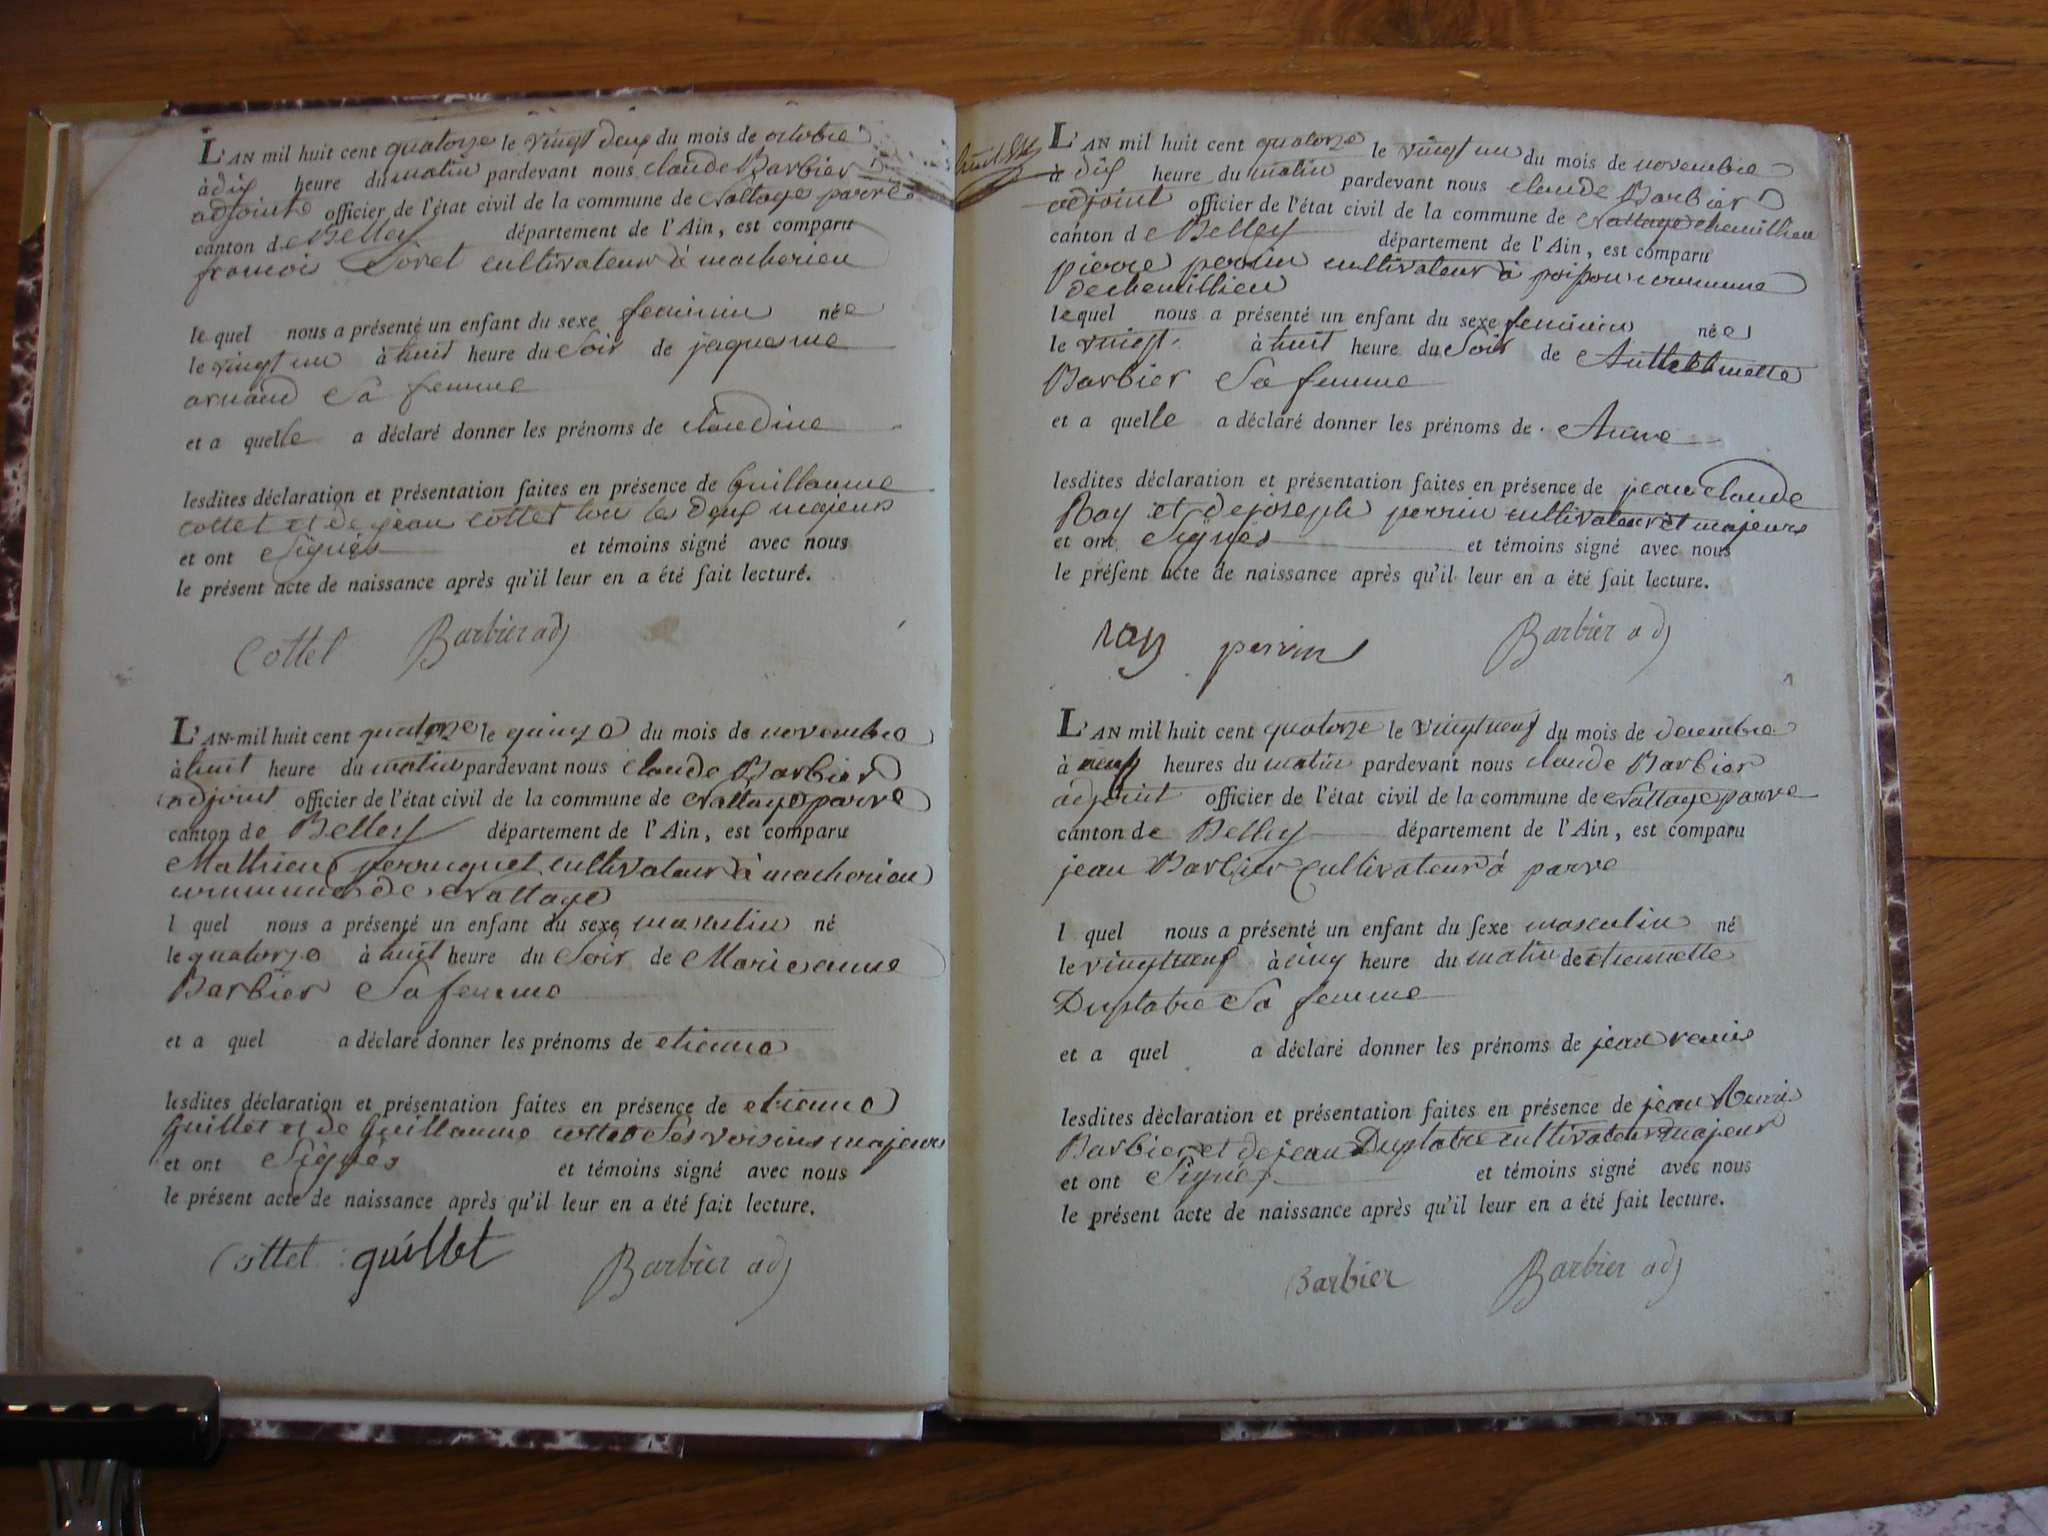 L'AN mil huit cent quatorze le vingt deux du mois de octobre
à dix heure du matin pardevant nous claude Barbier
adjoint officier de l'état civil de la commune de Nattage parve
canton de Belley département de l'Ain, est comparu
francois Soret cultivateur à macherieu
le quel nous a présenté un enfant du sexe feminin née
le vingt un à huit heure du soir de jaquesme
arnaud Sa femme
et a quelle a déclaré donner les prénoms de claudine
lesdites déclaration et présentation faites en présence de Guillaume
cottet et de jean cottet tou les deux majeurs
et ont Signés et témoins signé avec nous
le présent acte de naissance après qu'il leur en a été fait lecture.
Cottet Barbier adj
L'AN mil huit cent quatorze le quinze du mois de novembre
à huit heure du matin pardevant nous claude Barbier
adjoint officier de l'état civil de la commune de Nattage parve
canton de Belley département de l'Ain, est comparu
Mathieu perruquet cultivateur à macherieu
commune de Nattage
l quel nous a présenté un enfant du sexe masculin né
le quatorze à huit heure du Soir de Marieanne
Barbier Sa femme
et a quel a déclaré donner les prénoms de etienne
lesdites déclaration et présentation faites en présence de etienne
Guillet et de Guillaume cottet Ses voisins majeurs
et ont Signés et témoins signé avec nous
le présent acte de naissance après qu'il leur en a été fait lecture.
Cottet guillet Barbier adj
L'AN mil huit cent quatorze le vingt un du mois de novembre
à dix heure du matin pardevant nous claude Barbier
adjoint officier de l'état civil de la commune de Nattage chemillieu
canton d e Belley département de l'Ain, est comparu
pierre perrin cultivateur à poipon commune
de chemillieu
lequel nous a présenté un enfant du sexe feminin née
le vingt à huit heure du Soir de Anthelmette
Barbier Sa femme
et a quelle a déclaré donner les prénoms de Anne
lesdites déclaration et présentation faites en présence de jean claude
Ray et de joseph perrin cultivateur et majeurs
et ont Signés et témoins signé avec nous
le présent acte de naissance après qu'il leur en a été fait lecture.
ray perrin Barbier adj
L'AN mil huit cent quatorze le vingt neuf du mois de decembre
à neuf heures du matin pardevant nous claude Barbier
adjoint officier de l'état civil de la commune de Nattage parve
canton de Belley département de l'Ain, est comparu
jean Barbier cultivateur à parve
l quel nous a présenté un enfant du sexe masculin né
le vingt neuf à cinq heure du matin de etiennette
Duplatre Sa femme
et a quel a déclaré donner les prénoms de jean remis
lesdites déclaration et présentation faites en présence de jean Remis
Barbier et de jean Duplatre cultivateurs majeur
et ont Signés et témoins signé avec nous
le présent acte de naissance après qu'il leur en a été fait lecture.
Barbier Barbier adj